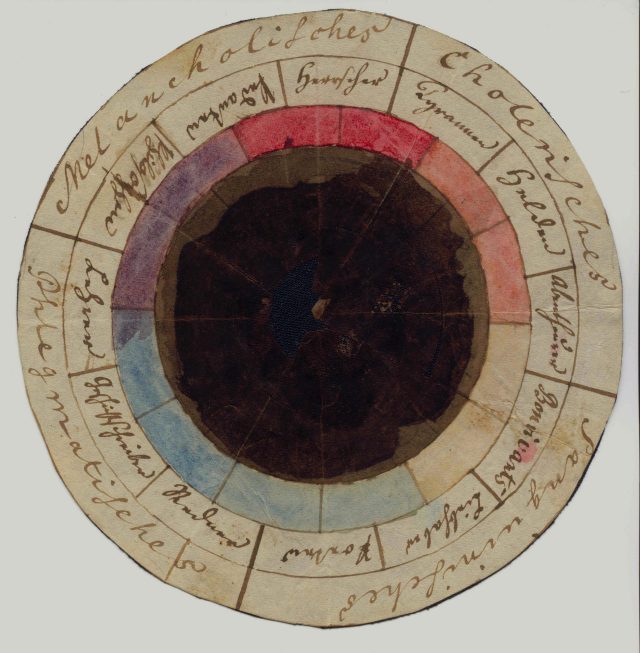 Cholerisches
Tyrannen
Helden
Sanguinisches
Liebhaber
Poeten
Phlegmatisches
Redner
Geschichtschreiber
Lehrer
Melancholisches
Philosophen
Pedanten
Herrscher